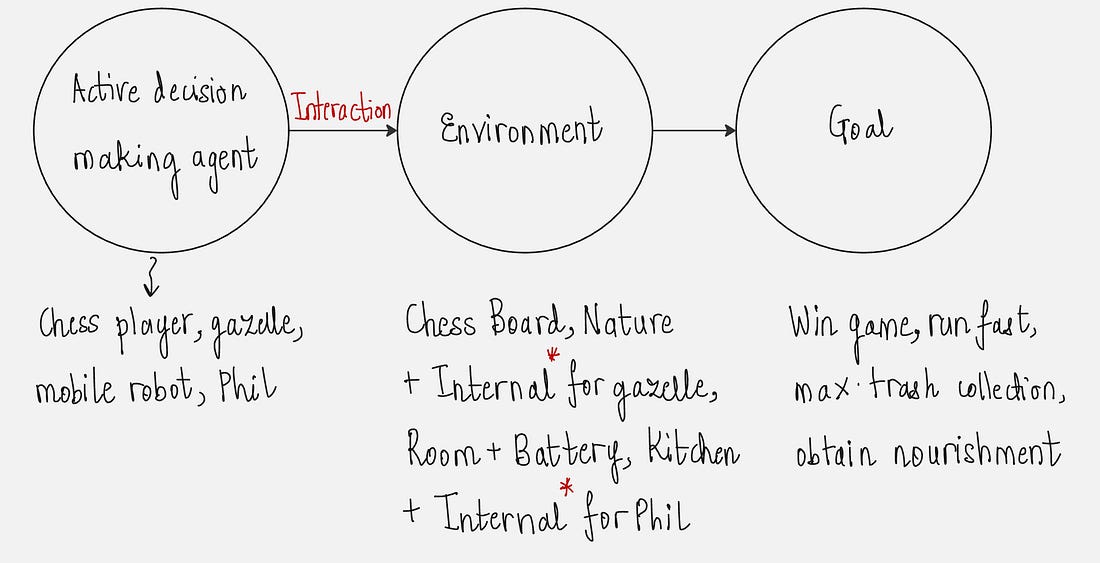 Active decision
making agent
Interaction
Environment
Goal
Chess player, gazelle,
mobile robot, Phil
Chess Board, Nature
+ Internal* for gazelle,
Room + Battery, Kitchen
+ Internal* for Phil
Win game, run fast,
max. trash collection,
obtain nourishment